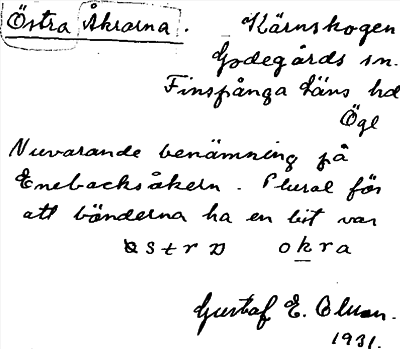 Östra Åkrarna. Kärnskogen
Godegårds sn.
Finspånga läns hd
Ögl
Nuvarande benämning på
Enebacksåkern. Plural för
att bönderna ha en bit var
östrɒ okra
Gustaf E. Olsson.
1931.